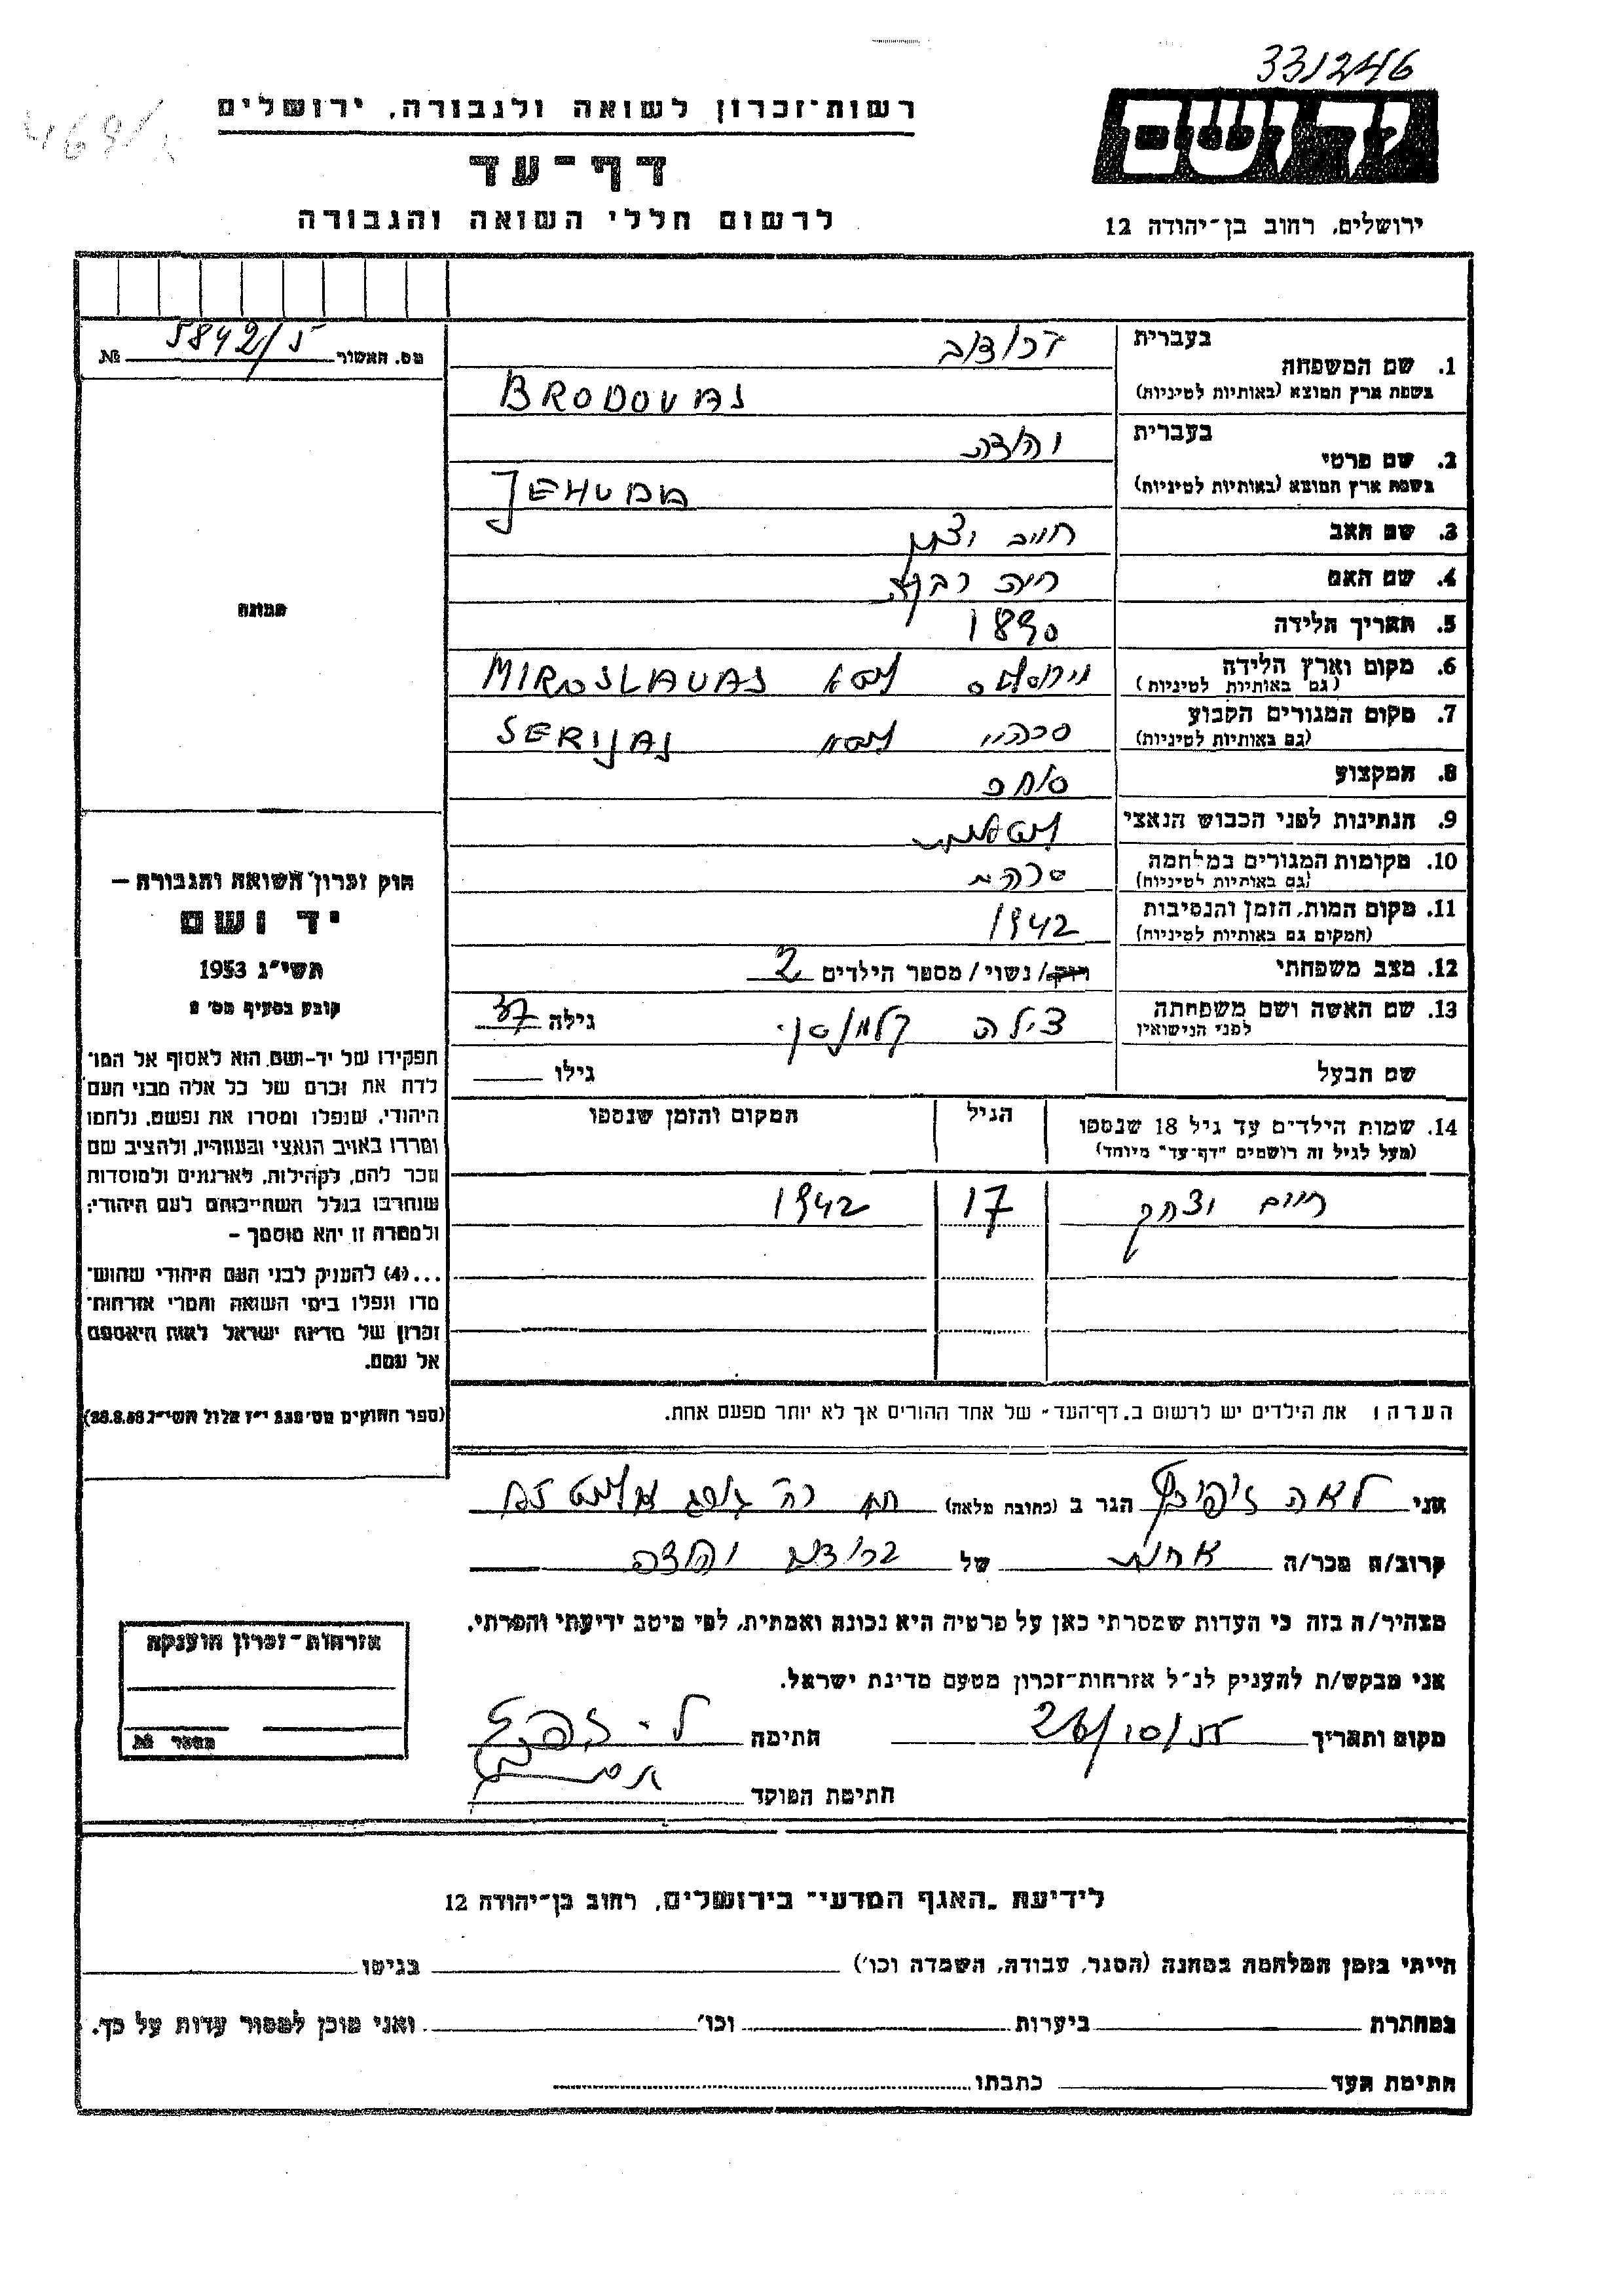 331246
יד ושם
רשות־זכרון לשואה ולגבורה, ירושלים
דף־עד
לרשום חללי השואה והגבורה
ירושלים, רחוב בן־יהודה 12
מס. האשור № 5842/5
1. שם המשפחה
בעברית
בשפת ארץ המוצא (באותיות לטיניות) BRODOVAS
2. שם פרטי
בעברית
בשפת ארץ המוצא (באותיות לטיניות) JEHUDA
3. שם האב חיים יצחק
4. שם האם חיה רבקה
5. תאריך הלידה 1890
6. מקום וארץ הלידה
(גם באותיות לטיניות) ליטא MIROSLAVAS
7. מקום המגורים הקבוע
(גם באותיות לטיניות) סרהיי ליטא SERIJAI
8. המקצוע סוחר
9. הנתינות לפני הכבוש הנאצי ליטאית
10. מקומות המגורים במלחמה
(גם באותיות לטיניות)
11. מקום המות, הזמן והנסיבות
(המקום גם באותיות לטיניות) 1942
12. מצב משפחתי רווק/ נשוי/ מספר הילדים 2
13. שם האשה ושם משפחתה
לפני הנישואין צילה גילה 37
שם הבעל גילו
14. שמות הילדים עד גיל 18 שנספו
(מעל לגיל זה רושמים "דף־עד" מיוחד)
הגיל
המקום והזמן שנספו
חיים יצחק 17 1942
הערה: את הילדים יש לרשום ב„דף־העד" של אחד ההורים אך לא יותר מפעם אחת.
תמונה
חוק זכרון השואה והגבורה —
יד ושם
תשי״ג 1953
קובע בסעיף מס׳ 2
תפקידו של יד־ושם הוא לאסוף אל המו־
לדת את זכרם של כל אלה מבני העם
היהודי, שנפלו ומסרו את נפשם, נלחמו
ומרדו באויב הנאצי ובעוזריו, ולהציב שם
וזכר להם, לקהילות, לארגונים ולמוסדות
שנחרבו בגלל השתייכותם לעם היהודי;
ולמטרה זו יהא מוסמך —
...(4) להעניק לבני העם היהודי שהוש־
מדו ונפלו בימי השואה והמרי אזרחות־
זכרון של מדינת ישראל לאות היאספם
אל עמם.
(ספר החוקים מס׳ 132 י״ז אלול תשי״ג 28.8.53)
אני לאה הגר ב (כתובת מלאה)
קרוב/ה מכר/ה אחות של ברודוב יהודה
מצהיר/ה בזה כי העדות שמסרתי כאן על פרטיה היא נכונה ואמתית, לפי מיטב ידיעתי והכרתי.
אני מבקש/ת להעניק לנ״ל אזרחות־זכרון מטעם מדינת ישראל.
מקום ותאריך 26/10/55 חתימה
חתימת הפוקד
אזרחות־זכרון הוענקה
מספר №
לידיעת „האגף המדעי" בירושלים, רחוב בן־יהודה 12
הייתי בזמן המלחמה במחנה (הסגר, עבודה, השמדה וכו׳) בגיטו
במחתרת ביערות וכו׳ ואני מוכן למסור עדות על כך.
חתימת העד כתבתו